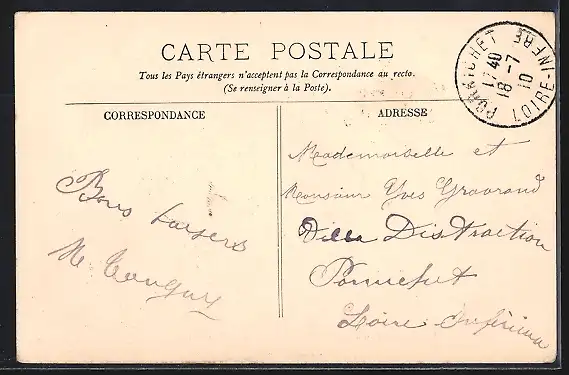 CARTE POSTALE
Tous les Pays étrangers n'acceptent pas la Correspondance au recto.
(Se renseigner à la Poste).
PORNICHET LOIRE-INFRE
17 40
18 -7
10
CORRESPONDANCE
ADRESSE
Bons baisers
M
Mademoiselle et
Monsieur Yves
Villa Distraction
Pornichet
Loire Inférieure